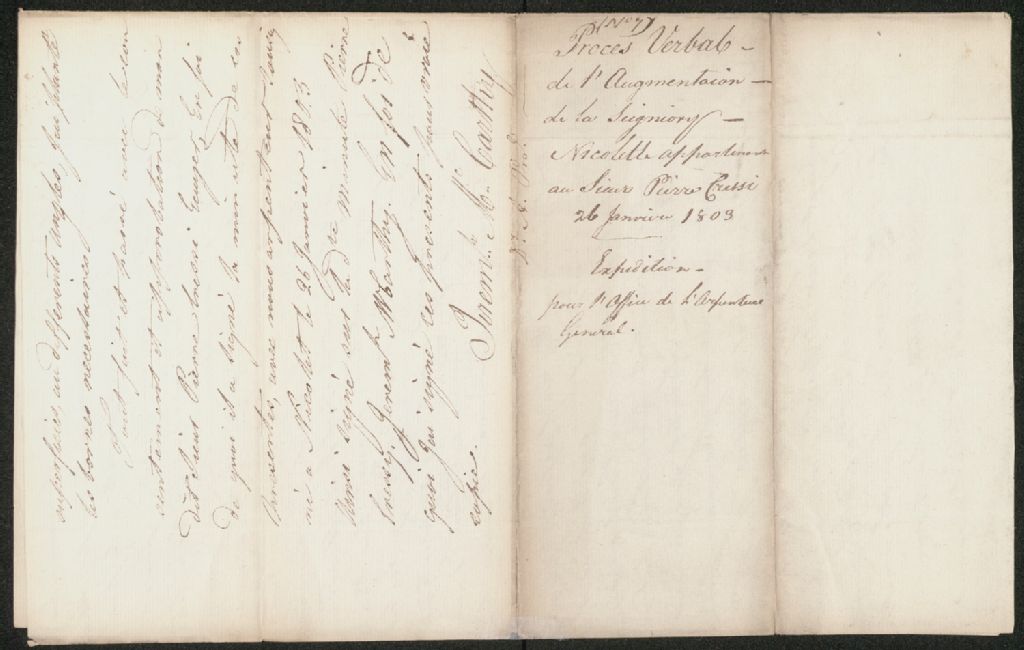 cy dessus, au differents angles j'ai planté
les bornes necessaires.
Tout quoi est passé avec le con
sentement et approbation de mon
dit Sieur Pierre
de quoi il a signé la minute de ces
presentes, avec nous arpenteur soussig
né a Nicolet le 26 Janvier 1803
Ainsi signé sur la d. minute Pierre
Cressy, Jeremh. McCarthy. En foi de
quoi j'ai signé ces presents pour vraie
copie.
Jeremh. McCarthy
(No. 7)
Procès Verbal
de l'Augmentaion
de la Seigniory
Nicolette appartenant
au Sieur Pierre Cressi
26 Janvier 1803
Expedition
pour l'Office de l'Arpenteur
General.